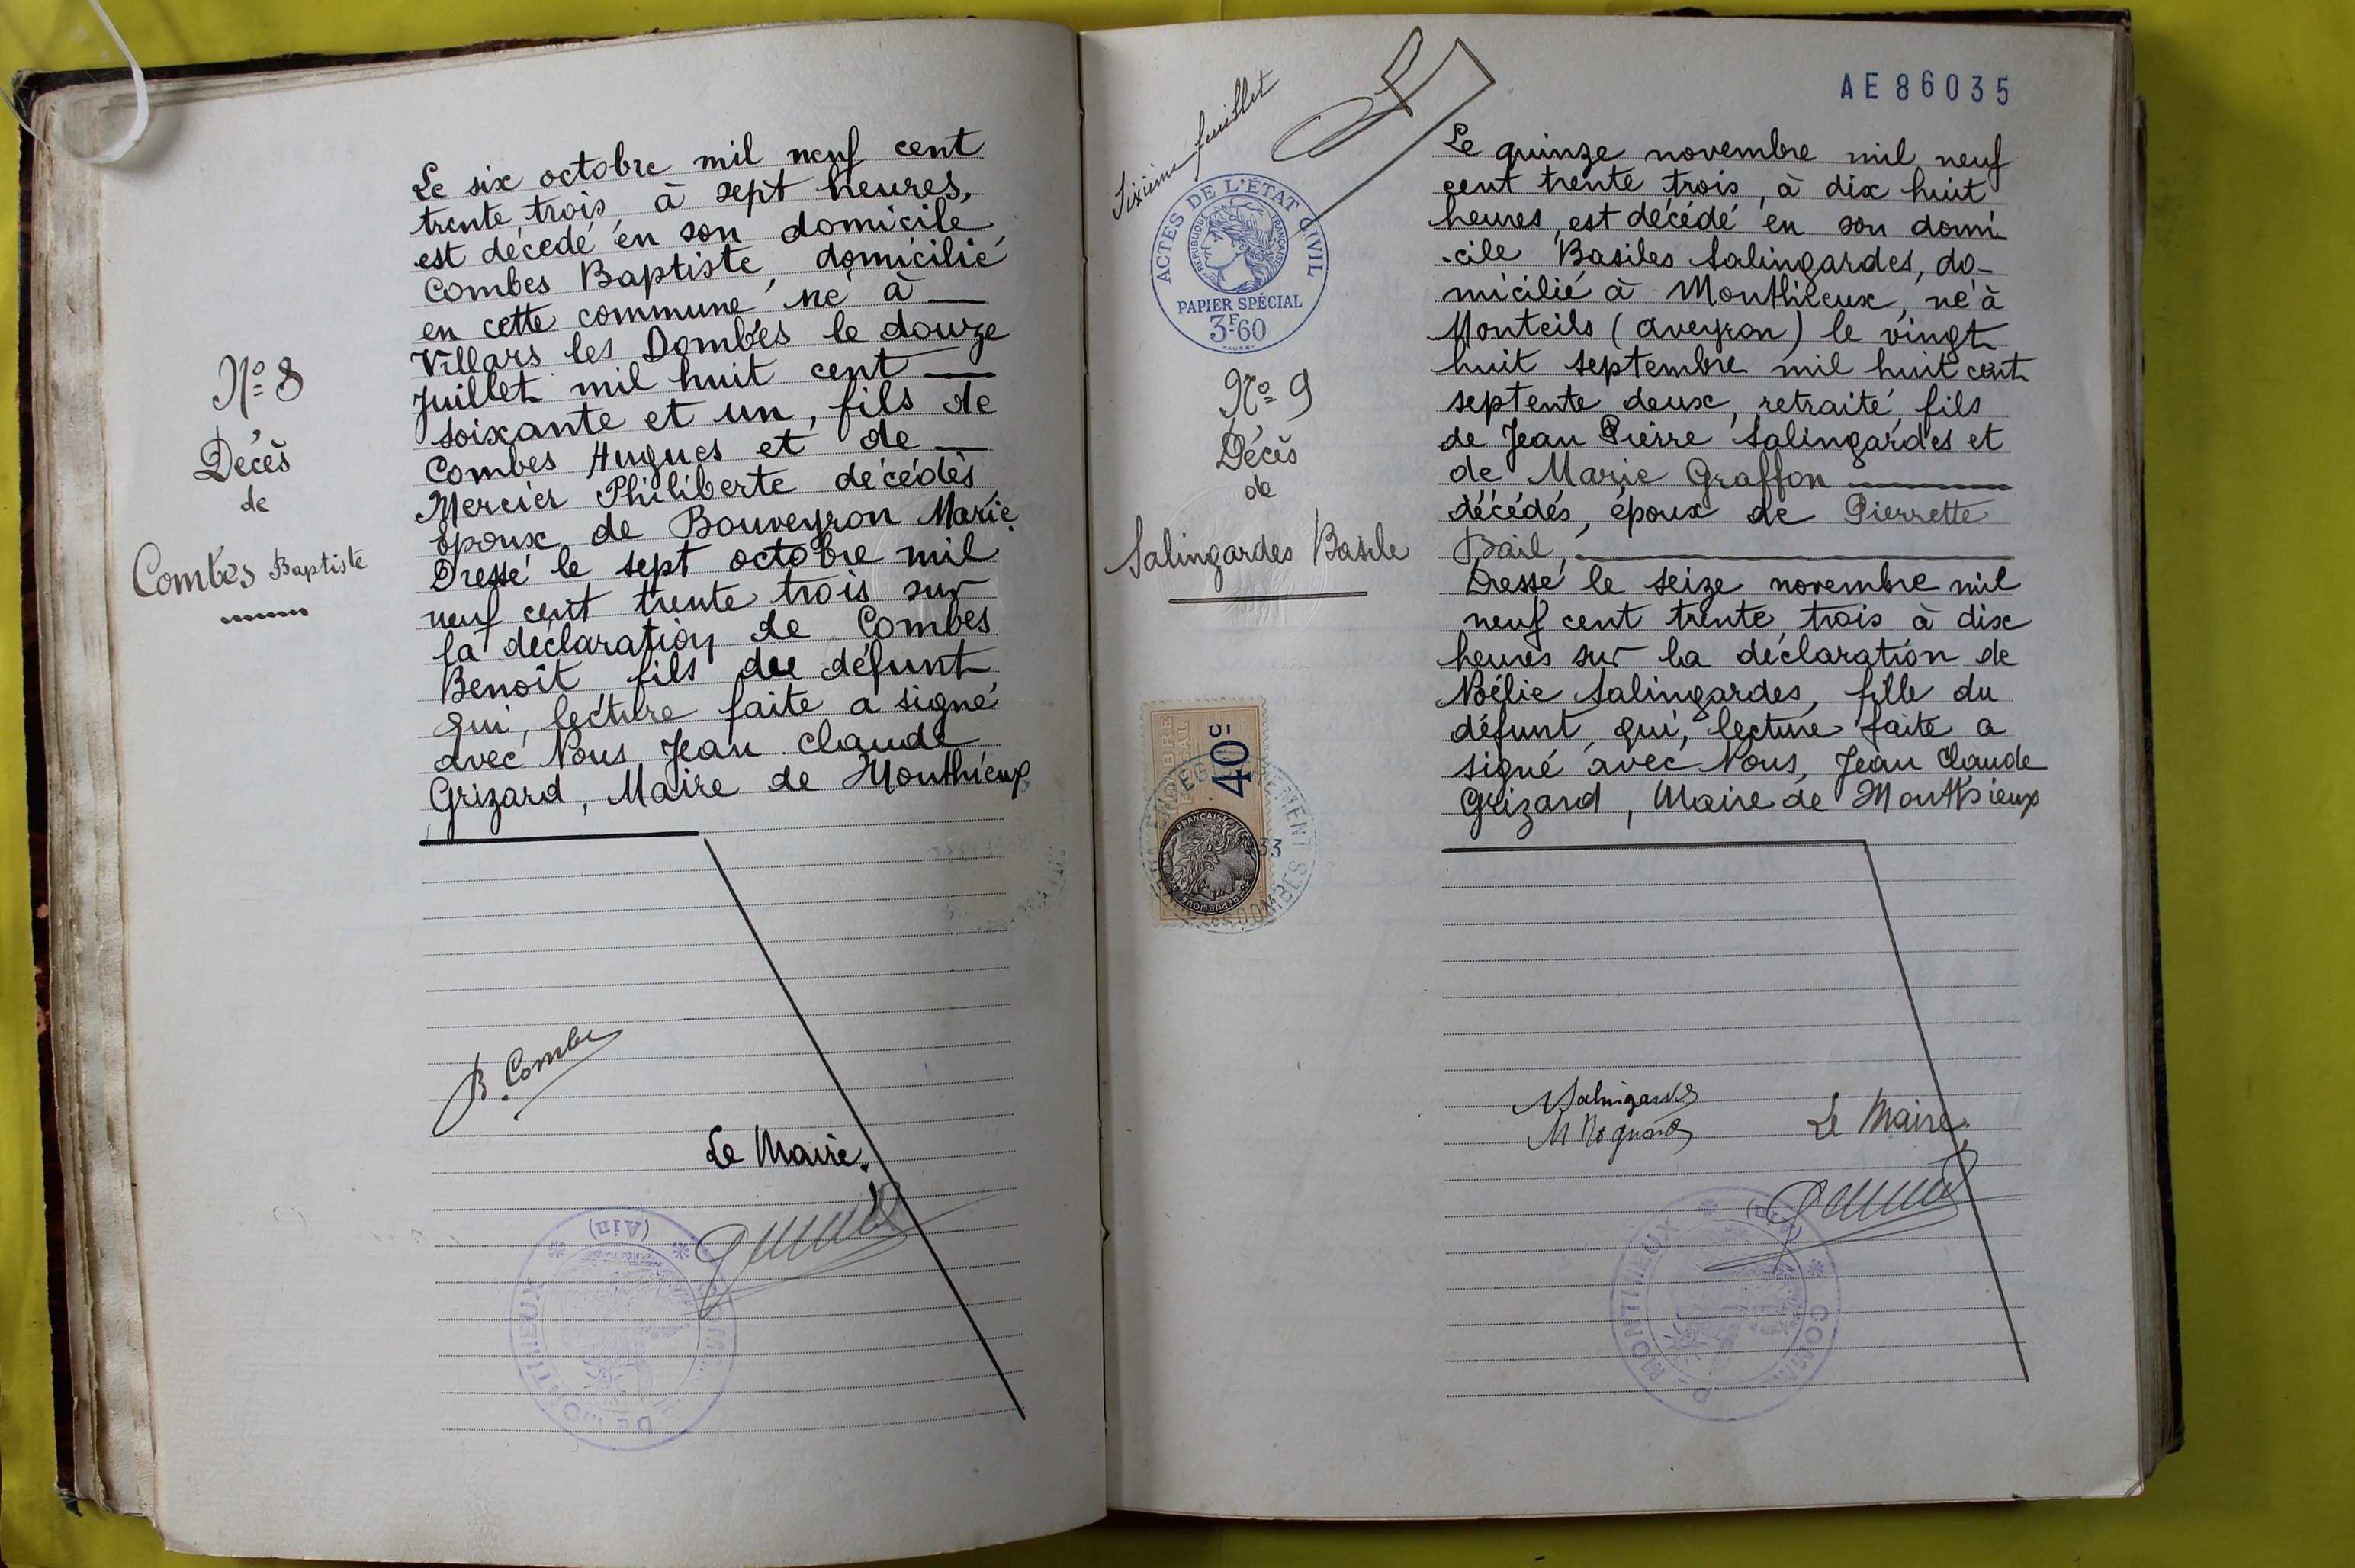 N° 8
Décès
de
Combes Baptiste
Le six octobre mil neuf cent
trente trois, à sept heures,
est décédé en son domicile
Combes Baptiste, domicilié
en cette commune, né à
Villars les Dombes le douze
Juillet mil huit cent
soixante et un, fils de
Combes Hugues et de
Mercier Philiberte décédés,
époux de Bouveyron Marie.
Dressé le sept octobre mil
neuf cent trente trois sur
la déclaration de Combes
Benoît fils du défunt
qui, lecture faite a signé
avec Nous Jean Claude
Grizard, Maire de Monthieux
B. Combe
Le Maire.
COMMUNE DE MONTHIEUX
(Ain)
Sixième feuillet
ACTES DE L'ÉTAT CIVIL
RÉPUBLIQUE FRANÇAISE
PAPIER SPÉCIAL
3F60
N° 9
Décès
de
Salingardes Basile
40c
FRANÇAISE
33
AE86035
Le quinze novembre mil neuf
cent trente trois, à dix huit
heures, est décédé en son domi
cile Basiles Salingardes, do-
micilié à Monthieux, né à
Monteils (Aveyron) le vingt
huit septembre mil huit cent
septente deux, retraité, fils
de Jean Pierre Salingardes et
de Marie Graffon
décédés, époux de Pierrette
Bail,
Dressé le seize novembre mil
neuf cent trente trois à dix
heures sur la déclaration de
Nélie Salingardes, fille du
défunt, qui, lecture faite a
signé avec Nous, Jean Claude
Grizard, Maire de Monthieux
Le Maire.
MONTHIEUX